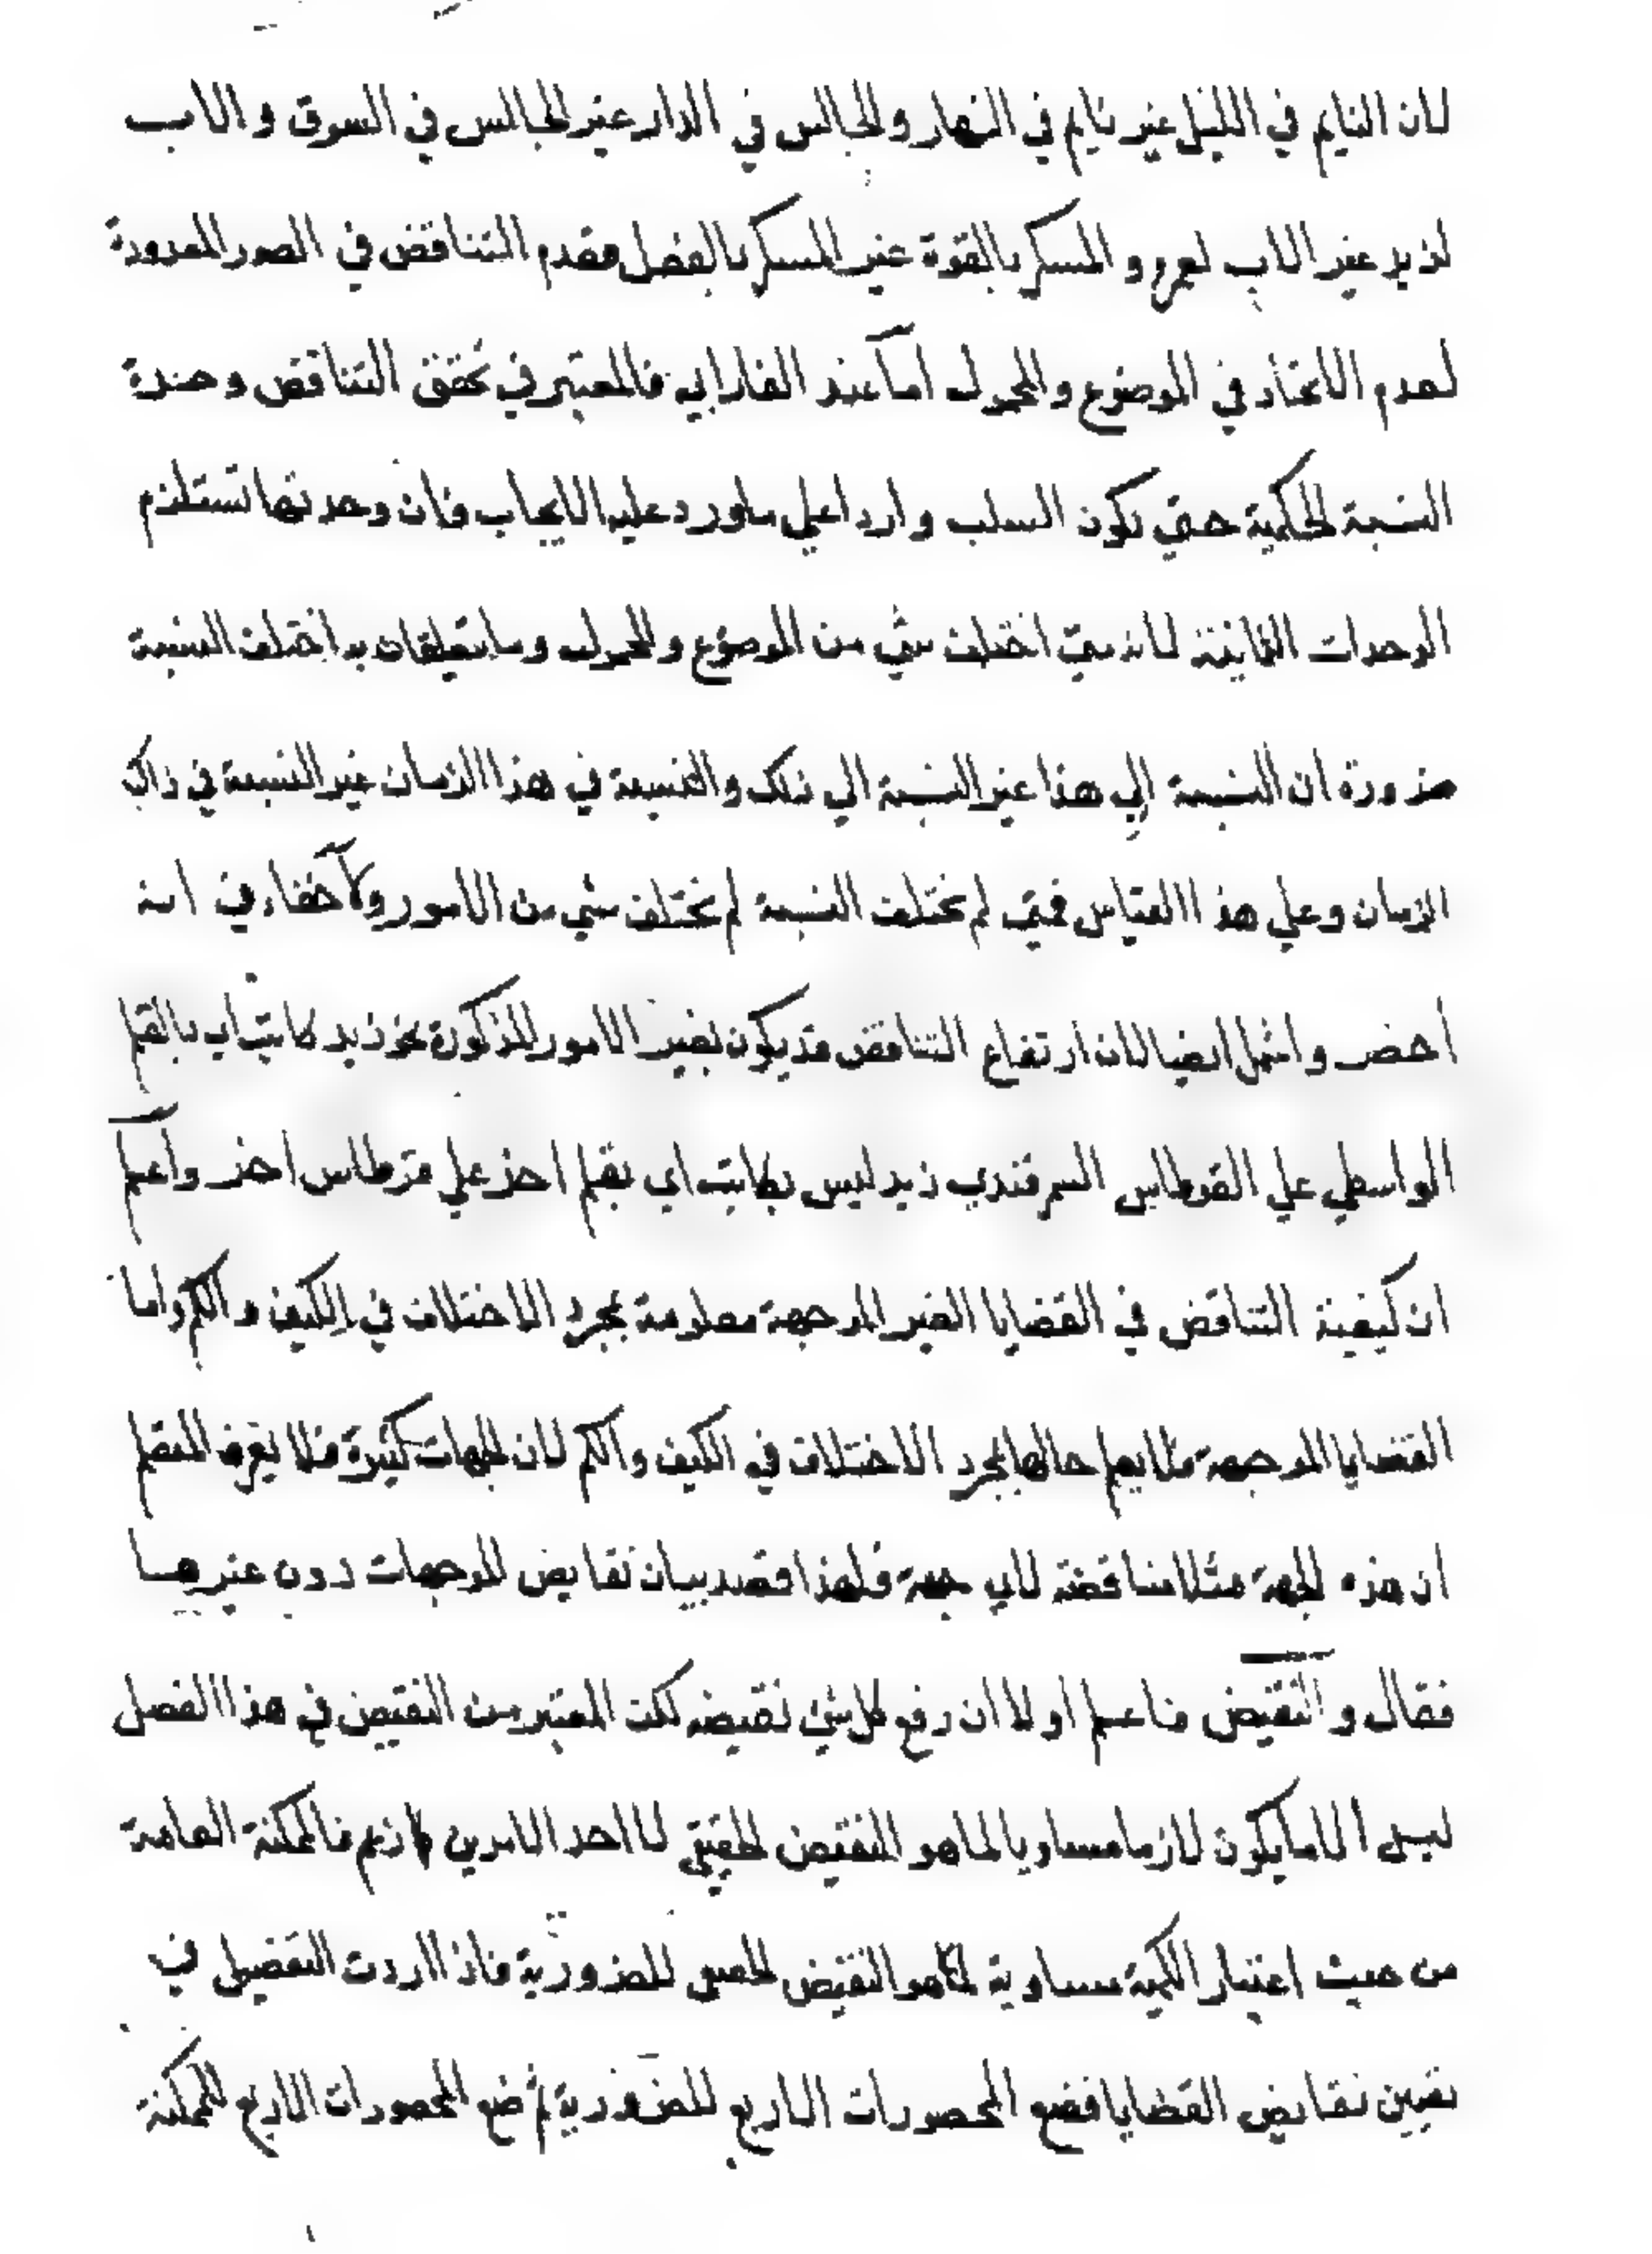 لان النايم في الليل غير نايم في النهار والجالس في الدار غير الجالس في السوق والاب
لزيد غير الاب لعمرو والمسكر بالقوة غير المسكر بالفعل فقدم التناقض في الصور المعدودة
لعدم الاتحاد في الموضوع والمحمول اما عند الفارابي فالمعتبر في تحقق التناقض وحدة
النسبة الحكمية حتى يكون السلب واردا علي ماورد عليه الايجاب فان وحدتها تستلزم
الوحدات الثمانية لانه متي اختلف شي من الموضوع والمحمول وما يتعلقان به اختلف النسبة
ضرورة ان النسبة الي هذا غير النسبة الي ذلك والنسبة في هذا الزمان غير النسبة في ذاك
الزمان وعلي هذا القياس فمتى لم تختلف النسبة لم تختلف شي من الامور ولا خفاء في انه
احضر واشمل ايضا لان ارتفاع التناقض قد يكون بغير الامور المذكورة نحو زيد كاتب اي بالقلم
الواسطي علي القرطاس السمرقندي زيد ليس بكاتب اي بقلم اخر علي قرطاس اخر واعلم
ان كيفية التناقض في القضايا الغير الموجهة معلومة بمجرد الاختلاف في الكيف والكم واما
القضايا الموجهة فلا يعلم حالها بمجرد الاختلاف في الكيف والكم لان الجهات كثيرة فلا يعرف المتعلم
ان هذه الجهة مثلا مناقضة لاي جهة فلهذا قصد بيان نقايض الموجهات دون غيرها
فقال والنقيض فاعلم اولا ان رفع كل شي نقيضه لكن المعتبر من النقيض في هذا الفصل
ليس الا ما يكون لازما مساويا لما هو النقيض الحقيقي لا احد الامرين لازم فالممكنة العامة
من حيث اعتبار الكمية مساوية لما هو النقيض للضرورية فاذا اردت التفصيل في
تعيين نقايض القضايا فضع المحصورات الاربع للضرورية ثم ضع المحصورات الاربع للممكنة